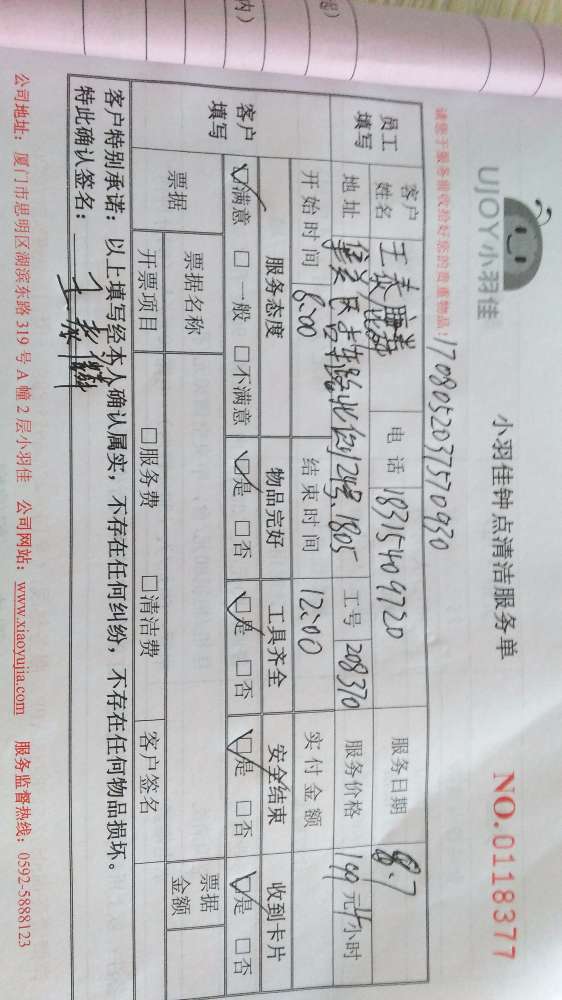 UJOY小羽佳
小羽佳钟点清洁服务单
NO.0118377
请您于服务前收拾好您的贵重物品!
1708052037570930
员工填写
客户姓名
电话 18315409720
服务日期 8.7
地址
工号 208370
服务价格 元/小时
开始时间 8:00
结束时间 12:00
实付金额
客户填写
服务态度 物品完好 工具齐全 安全结束 收到卡片
☑满意 □一般 □不满意 ☑是 □否 ☑是 □否 ☑是 □否 ☑是 □否
票据
票据名称
票据金额
开票项目 □服务费 □清洁费 客户签名
客户特别承诺：以上填写经本人确认属实，不存在任何纠纷，不存在任何物品损坏。
特此确认签名：
公司地址：厦门市思明区湖滨东路 319 号 A 幢 2 层小羽佳 公司网站：www.xiaoyujia.com 服务监督热线：0592-5888123